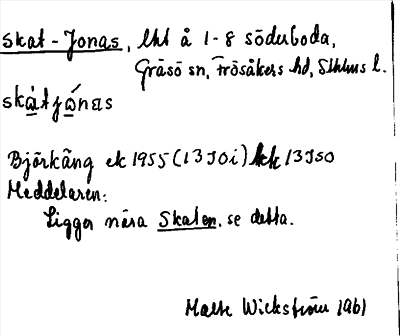 Skat-Jonas, lht å 1-8 söderboda,
Gräsö sn, Frösåkers hd, Sthlms l.
skàtjónas
Björkäng ek 1955 (13J0i) 13J50
Meddelaren:
Ligger nära Skaten. se detta.
Malte Wickström 1961